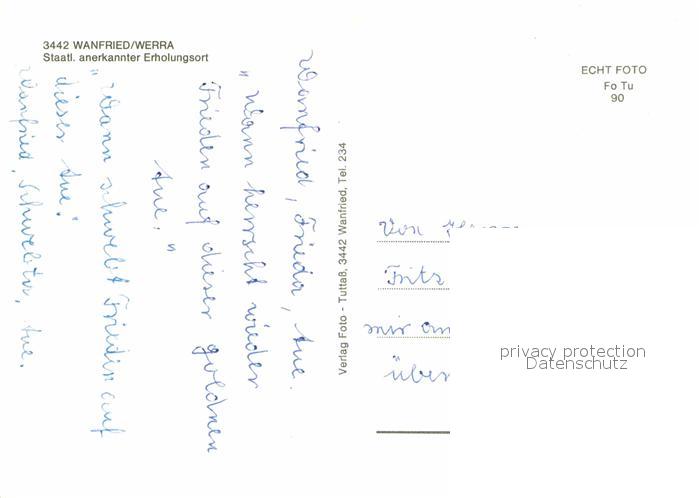 3442 WANFRIED/WERRA
Staatl. anerkannter Erholungsort
Wanfried, Frieda, Aue.
"Wann herrscht wieder
Frieden auf dieser goldnen
Aue."
"Wann schwebt Frieden auf
dieser Aue."
Wanfried, Schwebta, Aue.
Verlag Foto - Tuttaß, 3442 Wanfried, Tel. 234
ECHT FOTO
Fo Tu
90
Von
Fritz
mir am
über
privacy protection
Datenschutz